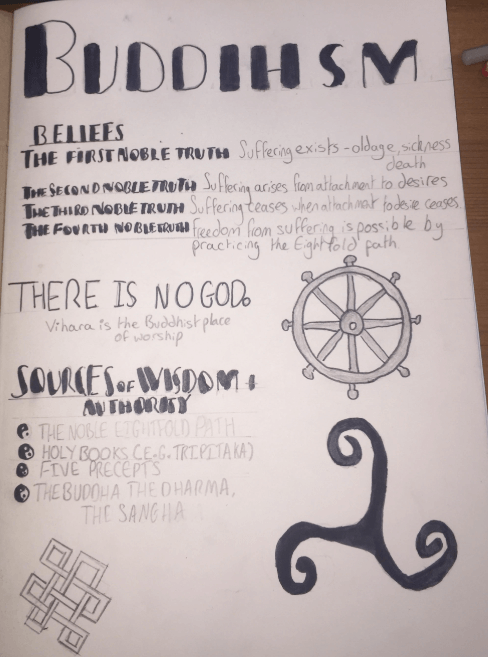 BUDDIHSM
BELIEFS
THE FIRST NOBLE TRUTH Suffering exists - oldage, sickness
death
THE SECOND NOBLE TRUTH Suffering arises from attachment to desires
THE THIRD NOBLE TRUTH Suffering ceases when attachment to desire ceases
THE FOURTH NOBLE TRUTH freedom from suffering is possible by
practicing the Eightfold path
THERE IS NO GOD.
Vihara is the Buddhist place
of worship
SOURCES OF WISDOM +
AUTHORITY
THE NOBLE EIGHTFOLD PATH
HOLY BOOKS (E.G. TRIPITAKA)
FIVE PRECEPTS
THE BUDDHA, THE DHARMA,
THE SANGHA